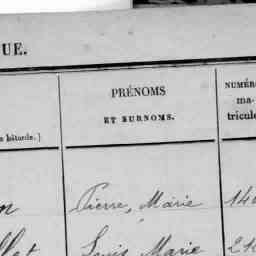 UE.
PRÉNOMS
ET SURNOMS.
NUMÉR
ma-
tricule
bâtarde.)
Pierre, Marie 14
Louis Marie 21